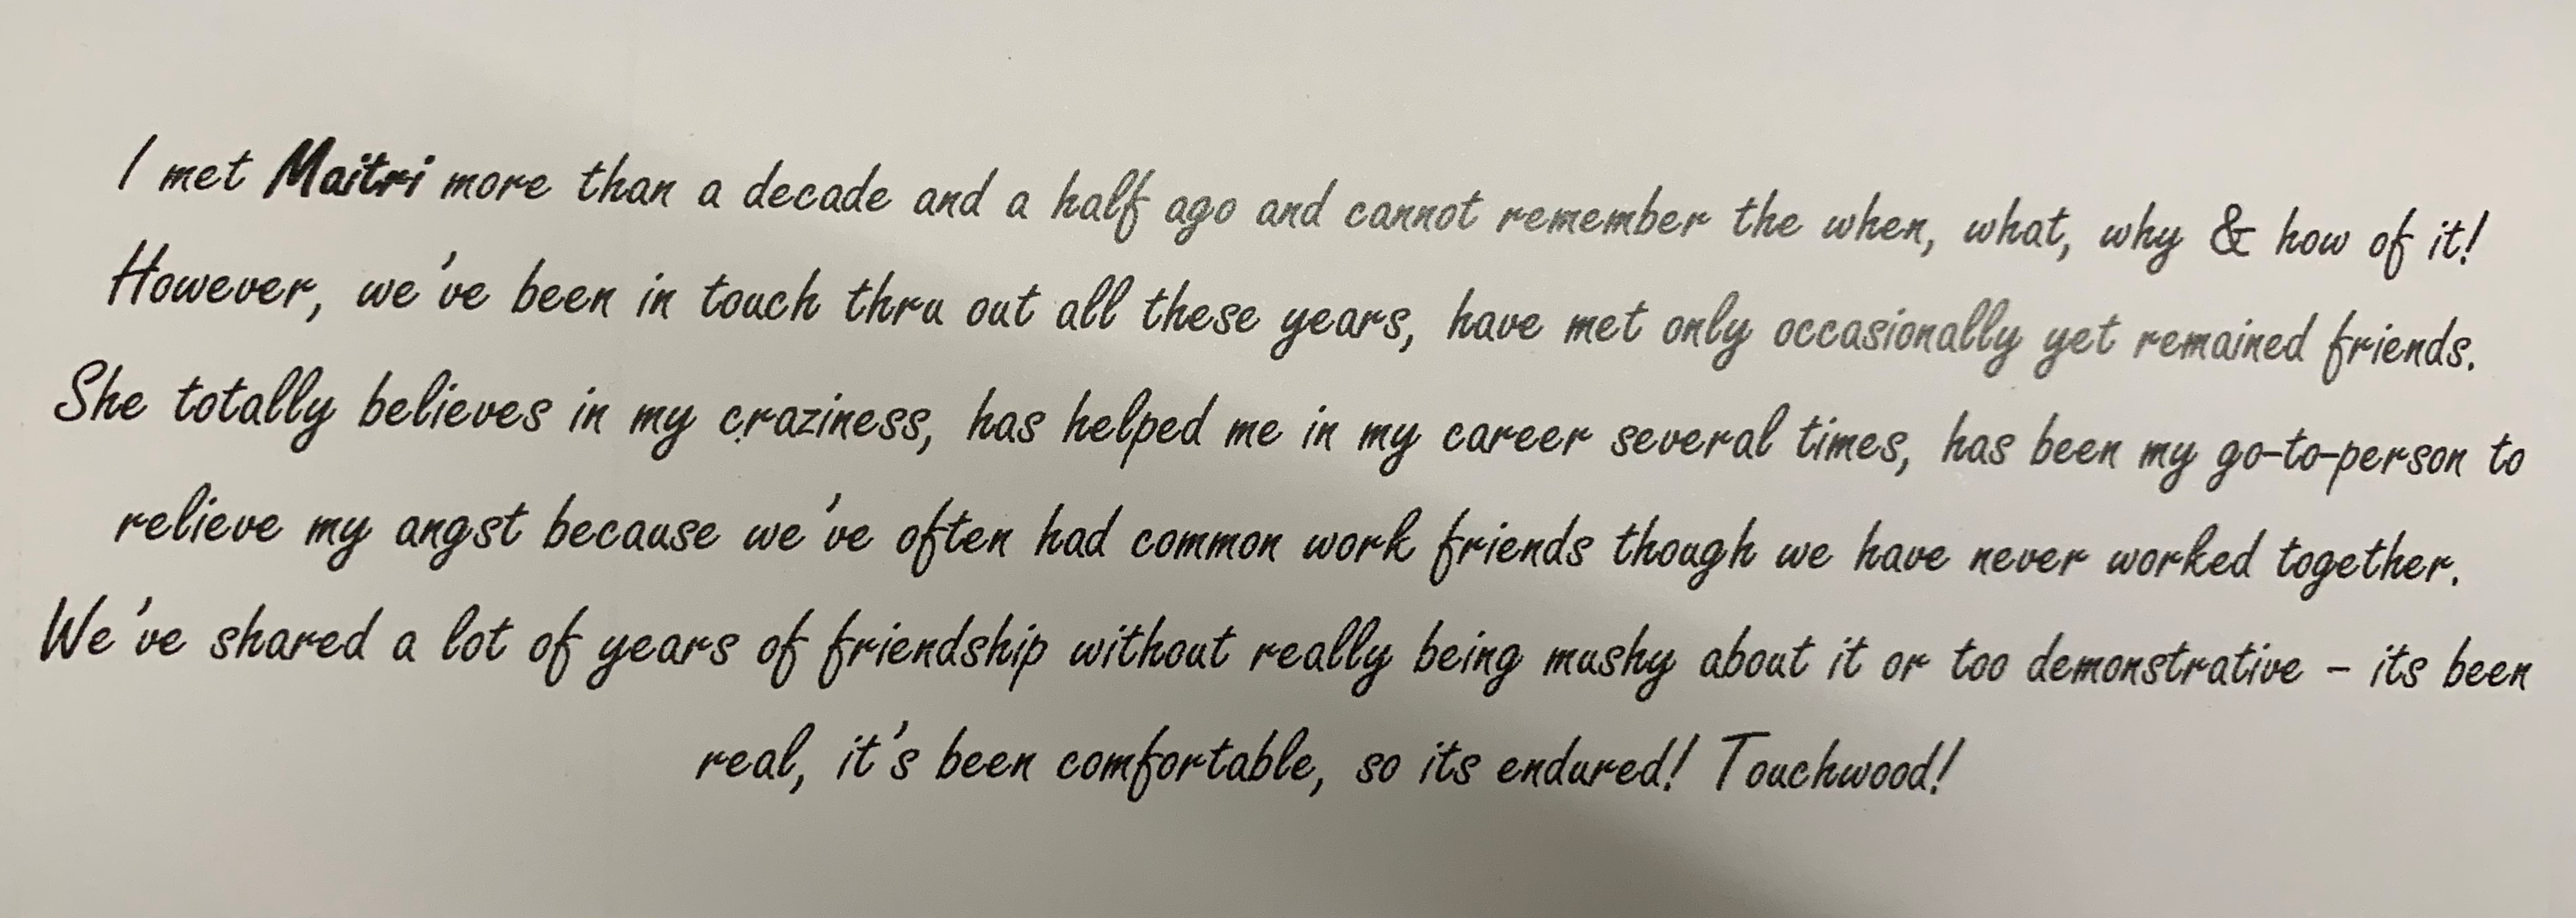 I met Maitri more than a decade and a half ago and cannot remember the when, what, why & how of it!
However, we've been in touch thru out all these years, have met only occasionally yet remained friends.
She totally believes in my craziness, has helped me in my career several times, has been my go-to-person to
relieve my angst because we've often had common work friends though we have never worked together.
We've shared a lot of years of friendship without really being mushy about it or too demonstrative – its been
real, it's been comfortable, so its endured! Touchwood!